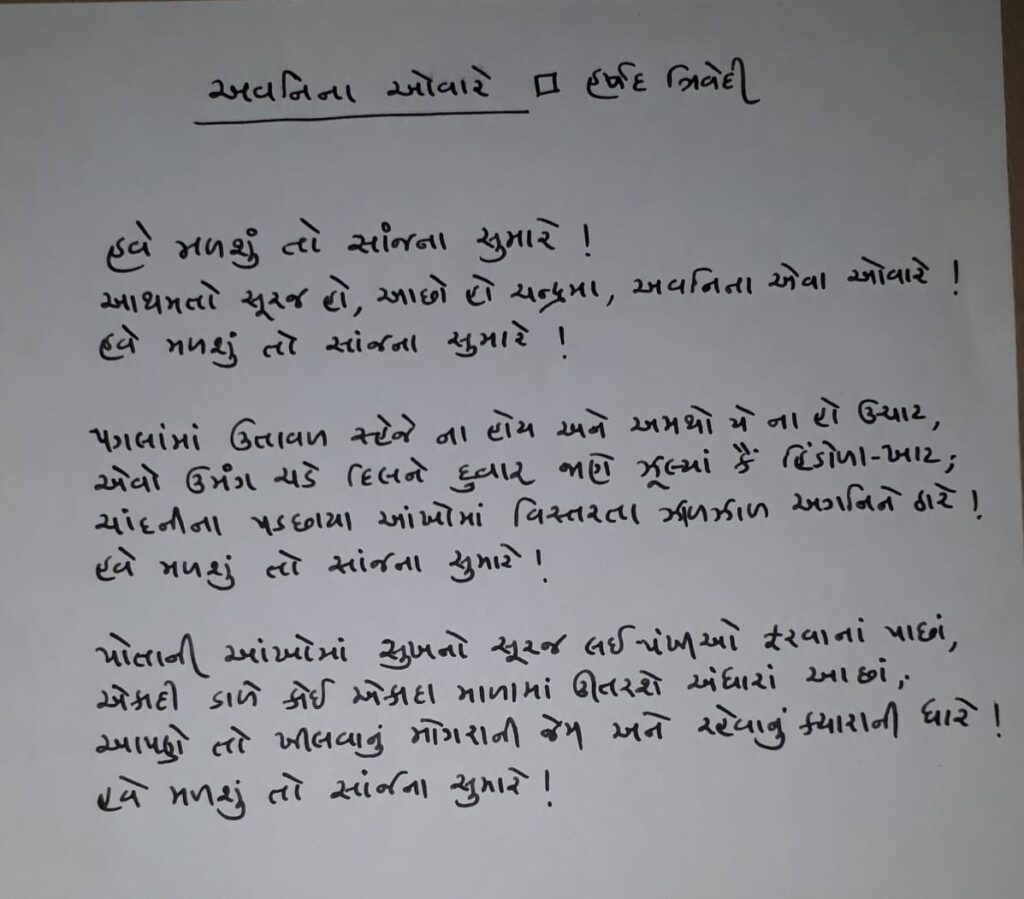 અવનિના ઓવારે □ હર્ષદ ત્રિવેદી
હવે મળશું તો સાંજના સુમારે !
આથમતો સૂરજ હો, આછો હો ચન્દ્રમા, અવનિના એવા ઓવારે !
હવે મળશું તો સાંજના સુમારે !
પગલાંમાં ઉતાવળ સ્હેજે ના હોય અને અમથો યે ના હો ઉચાટ,
એવો ઉમંગ ચડે દિલને દુવાર જાણે ઝૂલ્યાં કૈં હિંડોળા-ખાટ;
ચાંદનીના પડછાયા આંખોમાં વિસ્તરતા ઝાળઝાળ અગનિને ઠારે !
હવે મળશું તો સાંજના સુમારે !
પોતાની આંખોમાં સુખનો સૂરજ લઈ પંખીઓ ફરવાનાં પાછાં,
એકાદી ડાળે કોઈ એકાદા માળામાં ઊતરશે અંધારાં આછાં;
આપણે તો ખીલવાનું મોગરાની જેમ અને રહેવાનું ક્યારાની ધારે !
હવે મળશું તો સાંજના સુમારે !